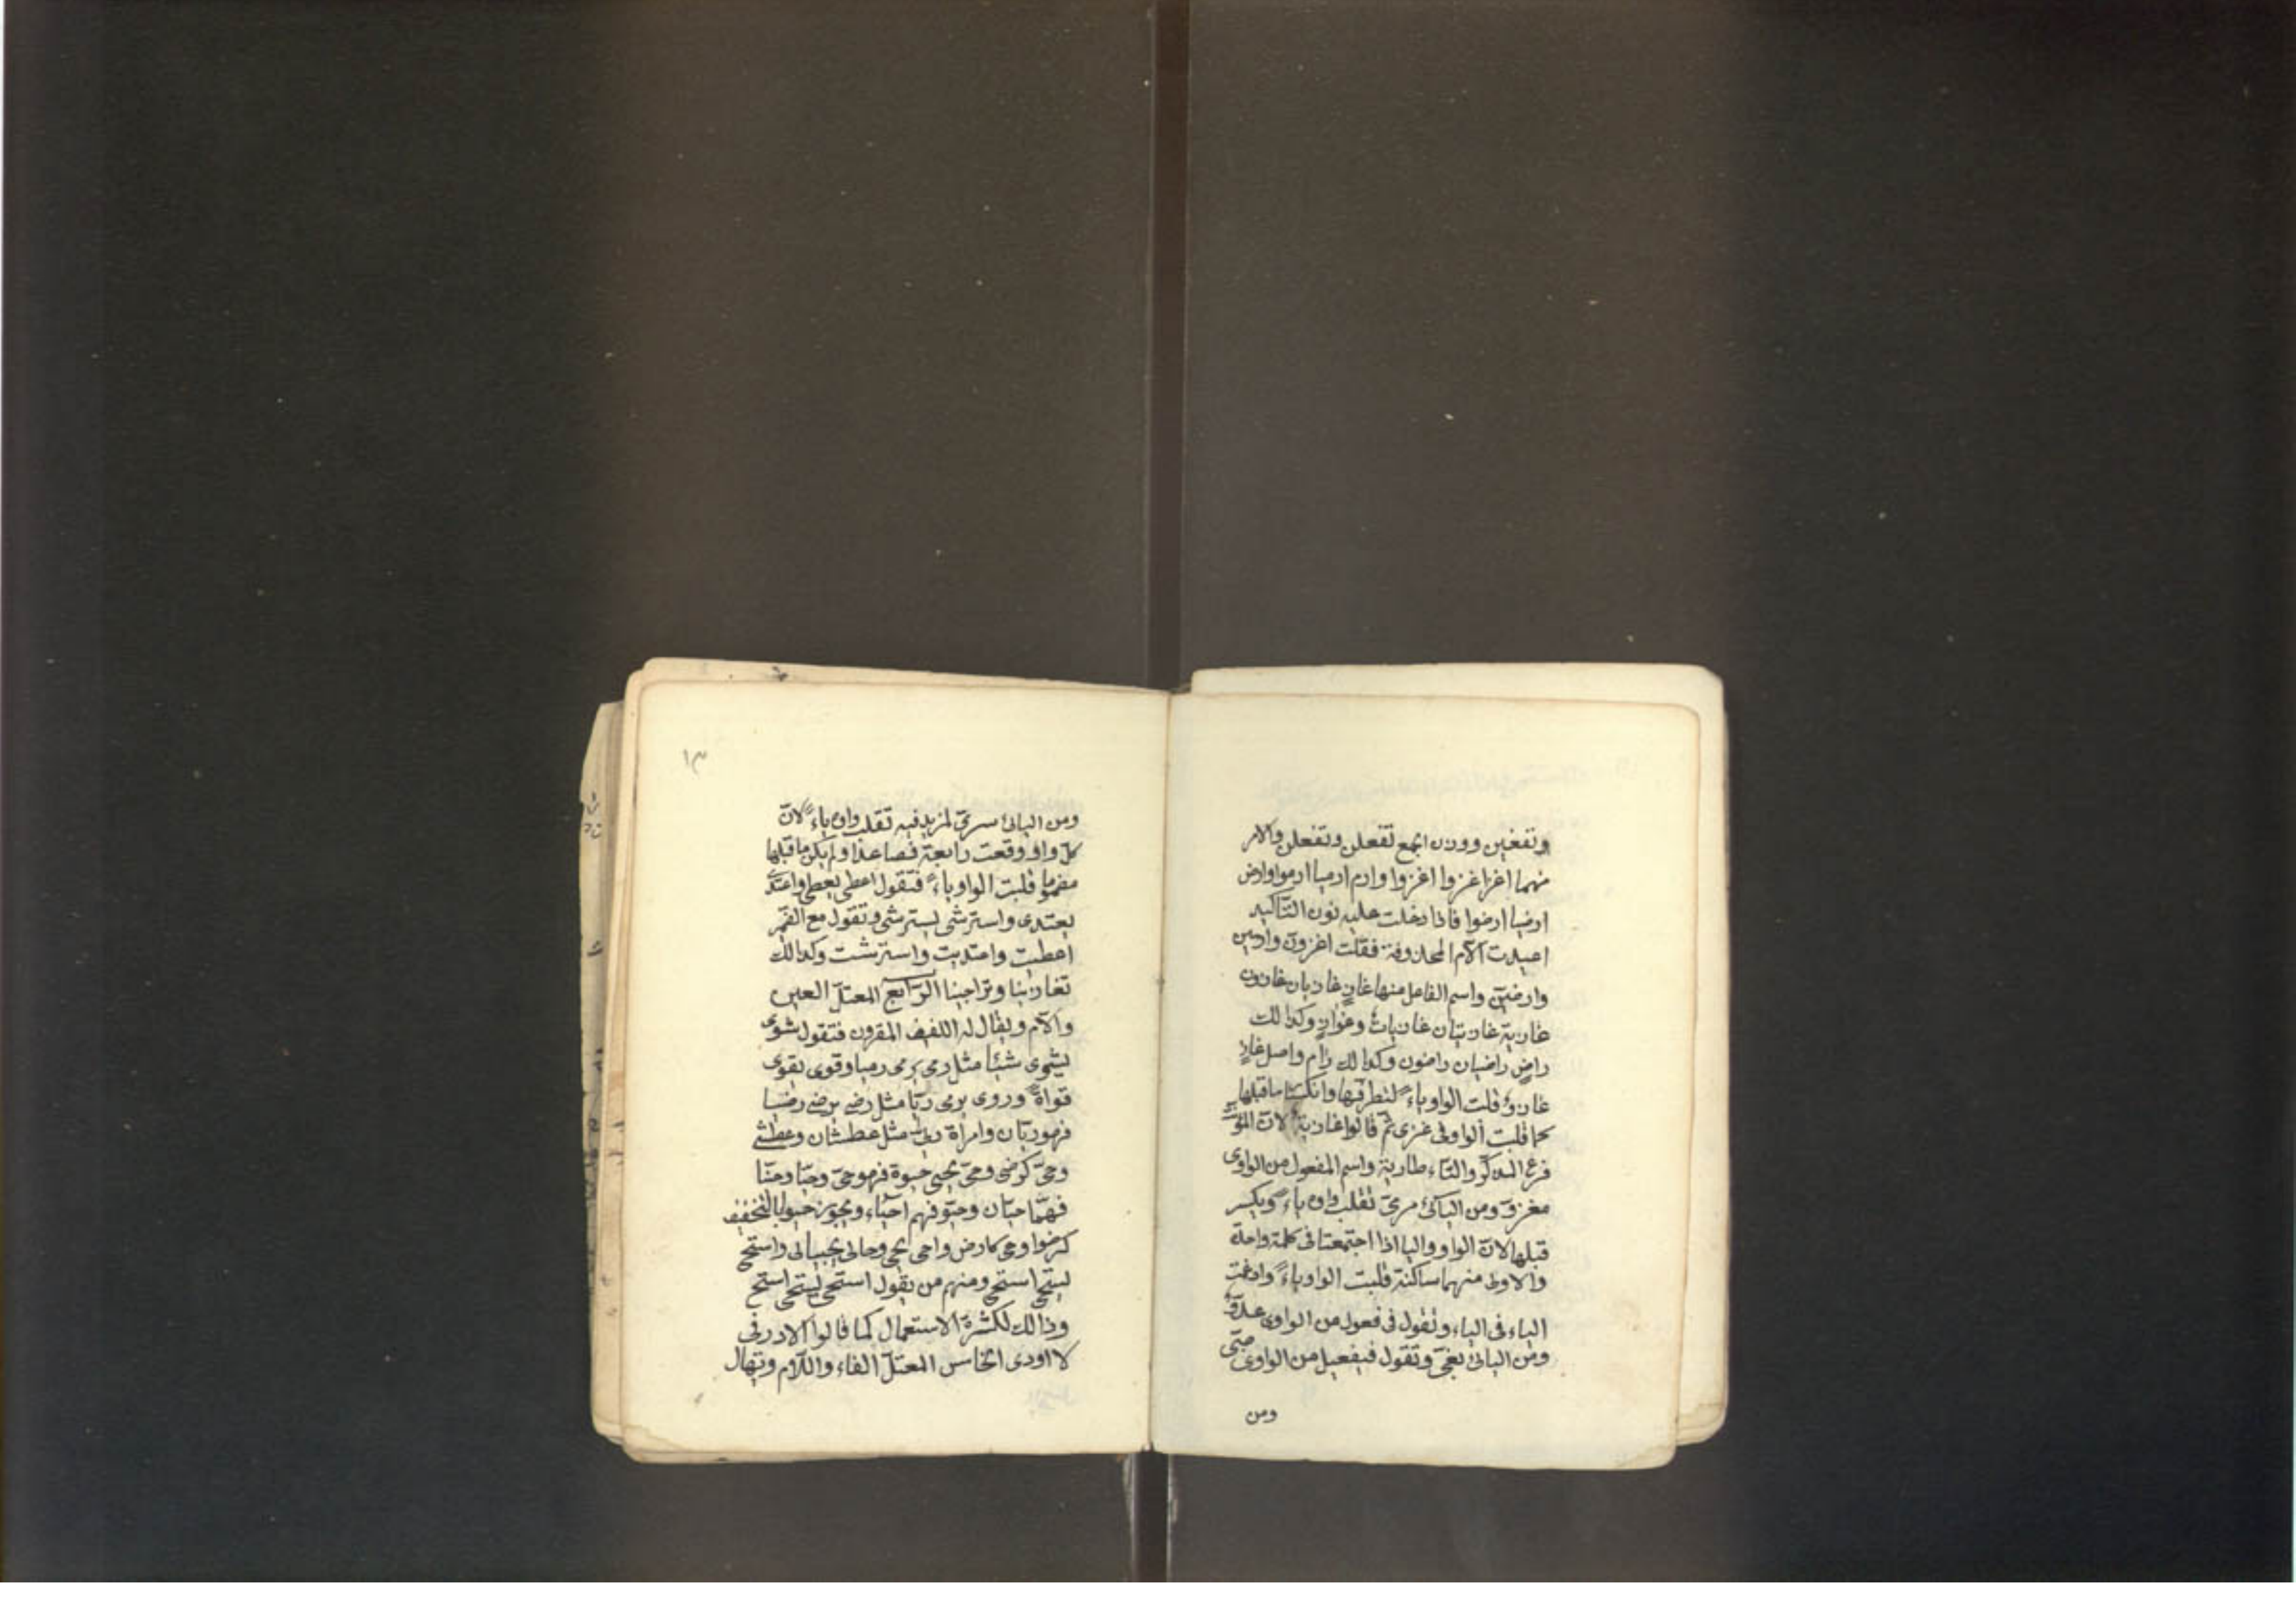 وتفعين ووزن الجمع تفعلن وتفعلن والامر
منهما اغز اغزوا اغزوا وارم ارميا ارموا وارض
ارضيا ارضوا فاذا دخلت عليه نون التاكيد
اعيدت اللام المحذوفة فقلت اغزون وارمين
وارضين واسم الفاعل منها غاز غازيان غازون
غازية غازيتان غازيات وغواز وكذالك
راض راضيان راضون وكذالك رام واصل غاز
غازو قلبت الواو ياء لتطرفها وانكسار ما قبلها
كما قلبت الواو فى غزى ثم قالوا غازية لان المؤنث
فرع المذكر والتاء طارية واسم المفعول من الواوى
مغزو ومن اليائى مرمى تقلب واوه ياء ويكسر
قبلها لان الواو واليا اذا اجتمعتا فى كلمة واحدة
والاولى منهما ساكنة قلبت الواو ياء وادغمت
الياء فى الياء وتقول فى فعول من الواوى عدو
ومن اليائى بغى وتقول فى فعيل من الواوى صبى
ومن
١٣
ومن اليائى سرى المزيد فيه تقلب واوه ياء لان
كل واو وقعت رابعة فصاعدا ولم يكن ما قبلها
مضموما قلبت الواو ياء فتقول اعطى يعطى واعتدى
يعتدى واسترشى يسترشى وتقول مع الضمير
اعطيت واعتديت واسترشت وكذالك
تغازينا وتراجينا الرابع المعتل العين
واللام ويقال له اللفيف المقرون فتقول شوى
يشوى شيئا مثل رمى يرمى رميا وقوى يقوى
قواة وروى يروى ريا مثل رضى يرضى رضيا
فهو ريان وامراة ريا مثل عطشان وعطشى
وحى كرضى وحى يحيى حيوة فهو حى وحيا وحيا
فهما حيان وحيو فهم احياء ويجوز حيوا بالتخفيف
كرضوا وحى كارض واحى يحيى وحالى يحيالى واستحى
يستحى استحى ومنهم من يقول استحى يستحى استح
وذالك لكثرة الاستعمال كما قالوا لا ادر فى
لا ادرى الخامس المعتل الفاء واللام ويقال